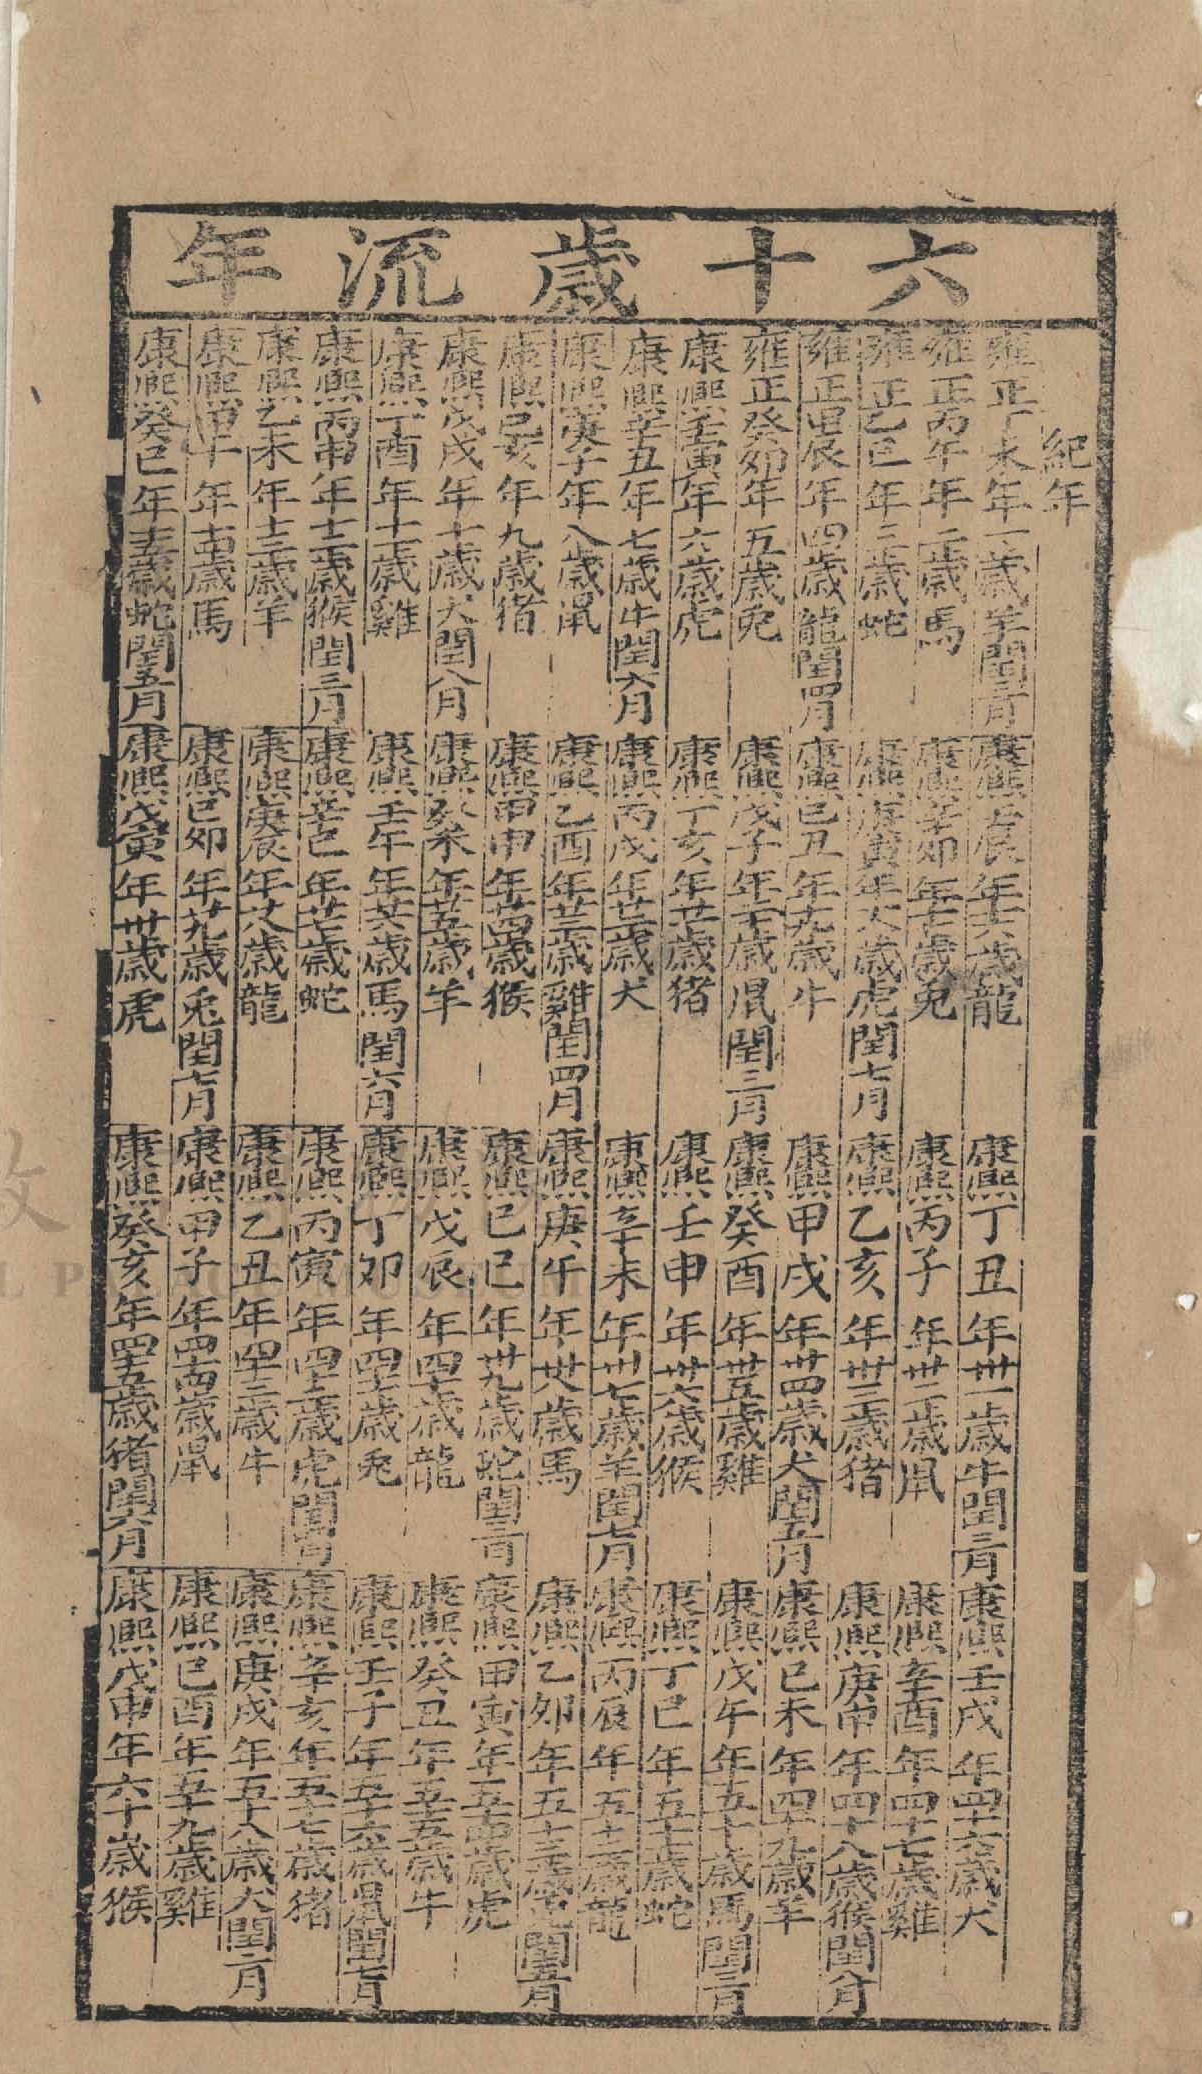 六十歲流年
紀年
雍正丁未年一歲羊閏三月
雍正丙午年二歲馬
雍正乙巳年三歲蛇
雍正甲辰年四歲龍閏四月
雍正癸卯年五歲兔
康熙壬寅年六歲虎
康熙辛丑年七歲牛閏六月
康熙庚子年八歲鼠
康熙己亥年九歲猪
康熙戊戌年十歲犬閏八月
康熙丁酉年十一歲雞
康熙丙申年十二歲猴閏三月
康熙乙未年十三歲羊
康熙甲午年十四歲馬
康熙癸巳年十五歲蛇閏五月
康熙壬辰年十六歲龍
康熙辛卯年十七歲兔
康熙庚寅年十八歲虎閏七月
康熙己丑年十九歲牛
康熙戊子年二十歲鼠閏三月
康熙丁亥年廿一歲猪
康熙丙戌年廿二歲犬
康熙乙酉年廿三歲雞閏四月
康熙甲申年廿四歲猴
康熙癸未年廿五歲羊
康熙壬午年廿六歲馬閏六月
康熙辛巳年廿七歲蛇
康熙庚辰年廿八歲龍
康熙己卯年廿九歲兔閏七月
康熙戊寅年卅歲虎
康熙丁丑年卅一歲牛閏三月
康熙丙子年卅二歲鼠
康熙乙亥年卅三歲猪
康熙甲戌年卅四歲犬閏五月
康熙癸酉年卅五歲雞
康熙壬申年卅六歲猴
康熙辛未年卅七歲羊閏七月
康熙庚午年卅八歲馬
康熙己巳年卅九歲蛇閏三月
康熙戊辰年四十歲龍
康熙丁卯年四十一歲兔
康熙丙寅年四十二歲虎閏四月
康熙乙丑年四十三歲牛
康熙甲子年四十四歲鼠
康熙癸亥年四十五歲猪閏六月
康熙壬戌年四十六歲犬
康熙辛酉年四十七歲雞
康熙庚申年四十八歲猴閏八月
康熙己未年四十九歲羊
康熙戊午年五十歲馬閏三月
康熙丁巳年五十一歲蛇
康熙丙辰年五十二歲龍
康熙乙卯年五十三歲兔閏五月
康熙甲寅年五十四歲虎
康熙癸丑年五十五歲牛
康熙壬子年五十六歲鼠閏七月
康熙辛亥年五十七歲猪
康熙庚戌年五十八歲犬閏二月
康熙己酉年五十九歲雞
康熙戊申年六十歲猴